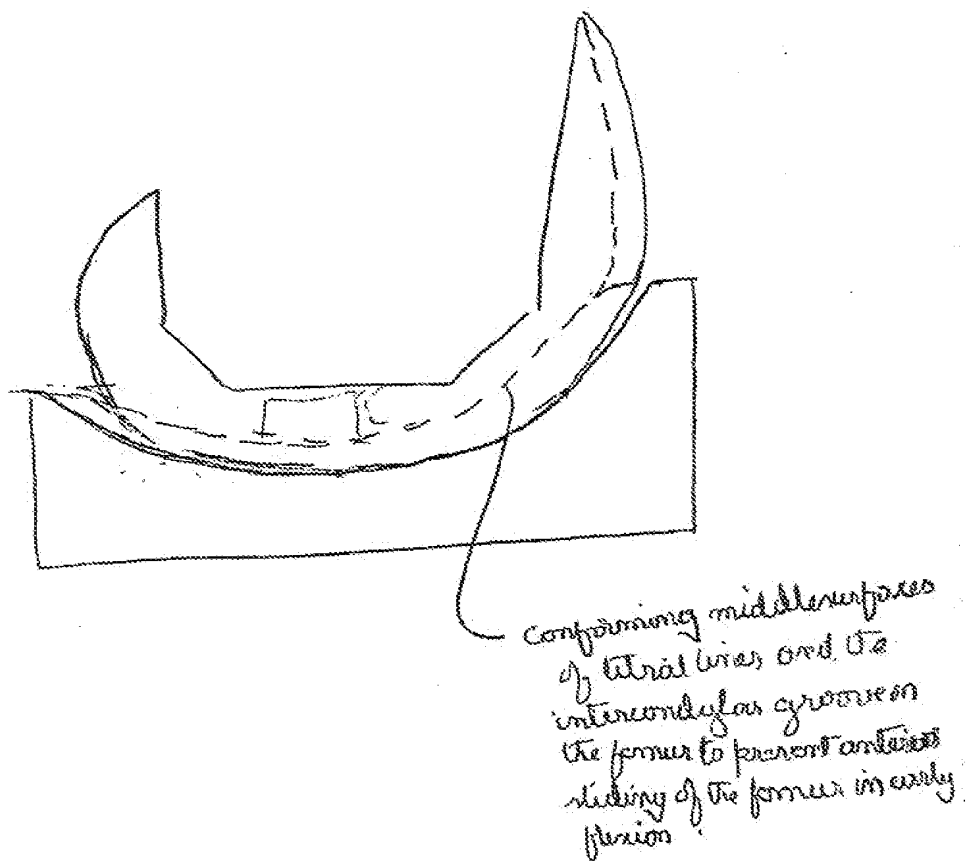 conforming middle surfaces
of tibial liner and the
intercondylar groove on
the femur to prevent anterior
sliding of the femur in early
flexion.